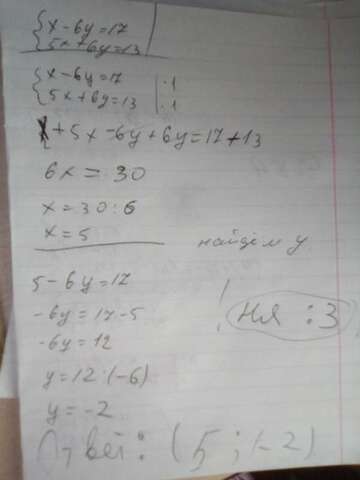 x - 6y = 17
5x + 6y = 13
x - 6y = 17 | · 1
5x + 6y = 13 | · 1
x + 5x - 6y + 6y = 17 + 13
6x = 30
x = 30 : 6
x = 5
найдём y
5 - 6y = 17
-6y = 17 - 5
! Ня :3
-6y = 12
y = 12 : (-6)
y = -2
Ответ: (5 ; -2)